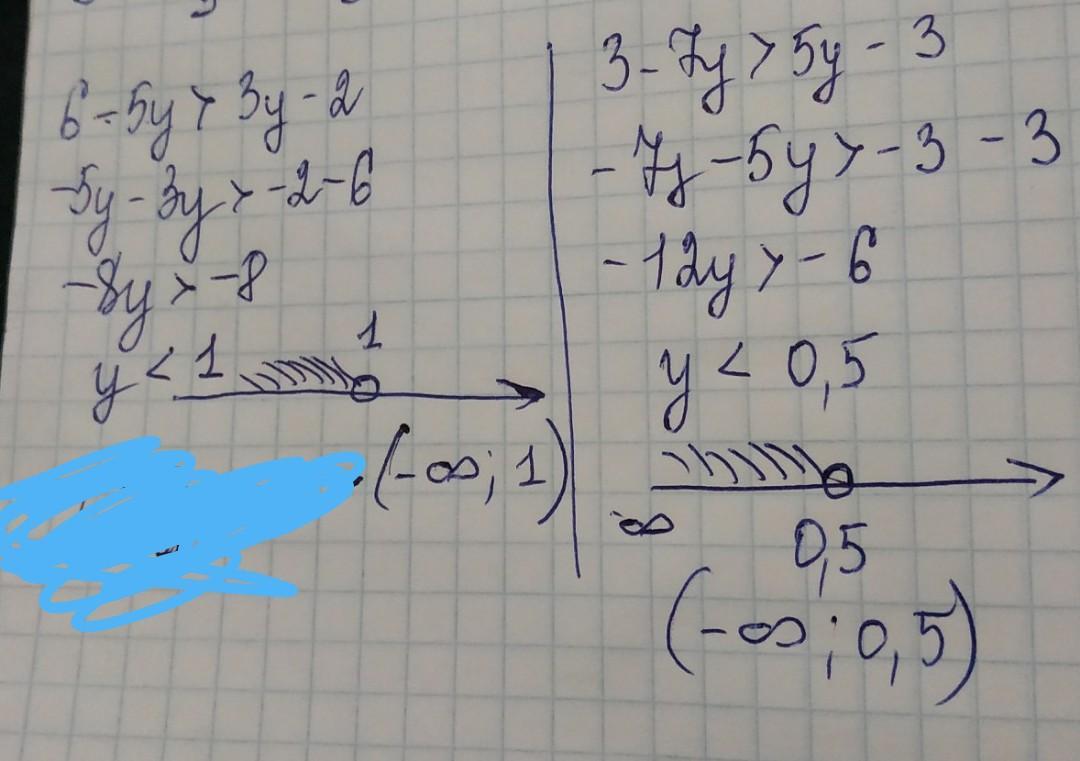 6 - 5y > 3y - 2
-5y - 3y > -2 - 6
-8y > -8
y < 1
1
(-∞; 1)
3 - 7y > 5y - 3
-7y - 5y > -3 - 3
-12y > -6
y < 0,5
-∞
0,5
(-∞; 0,5)